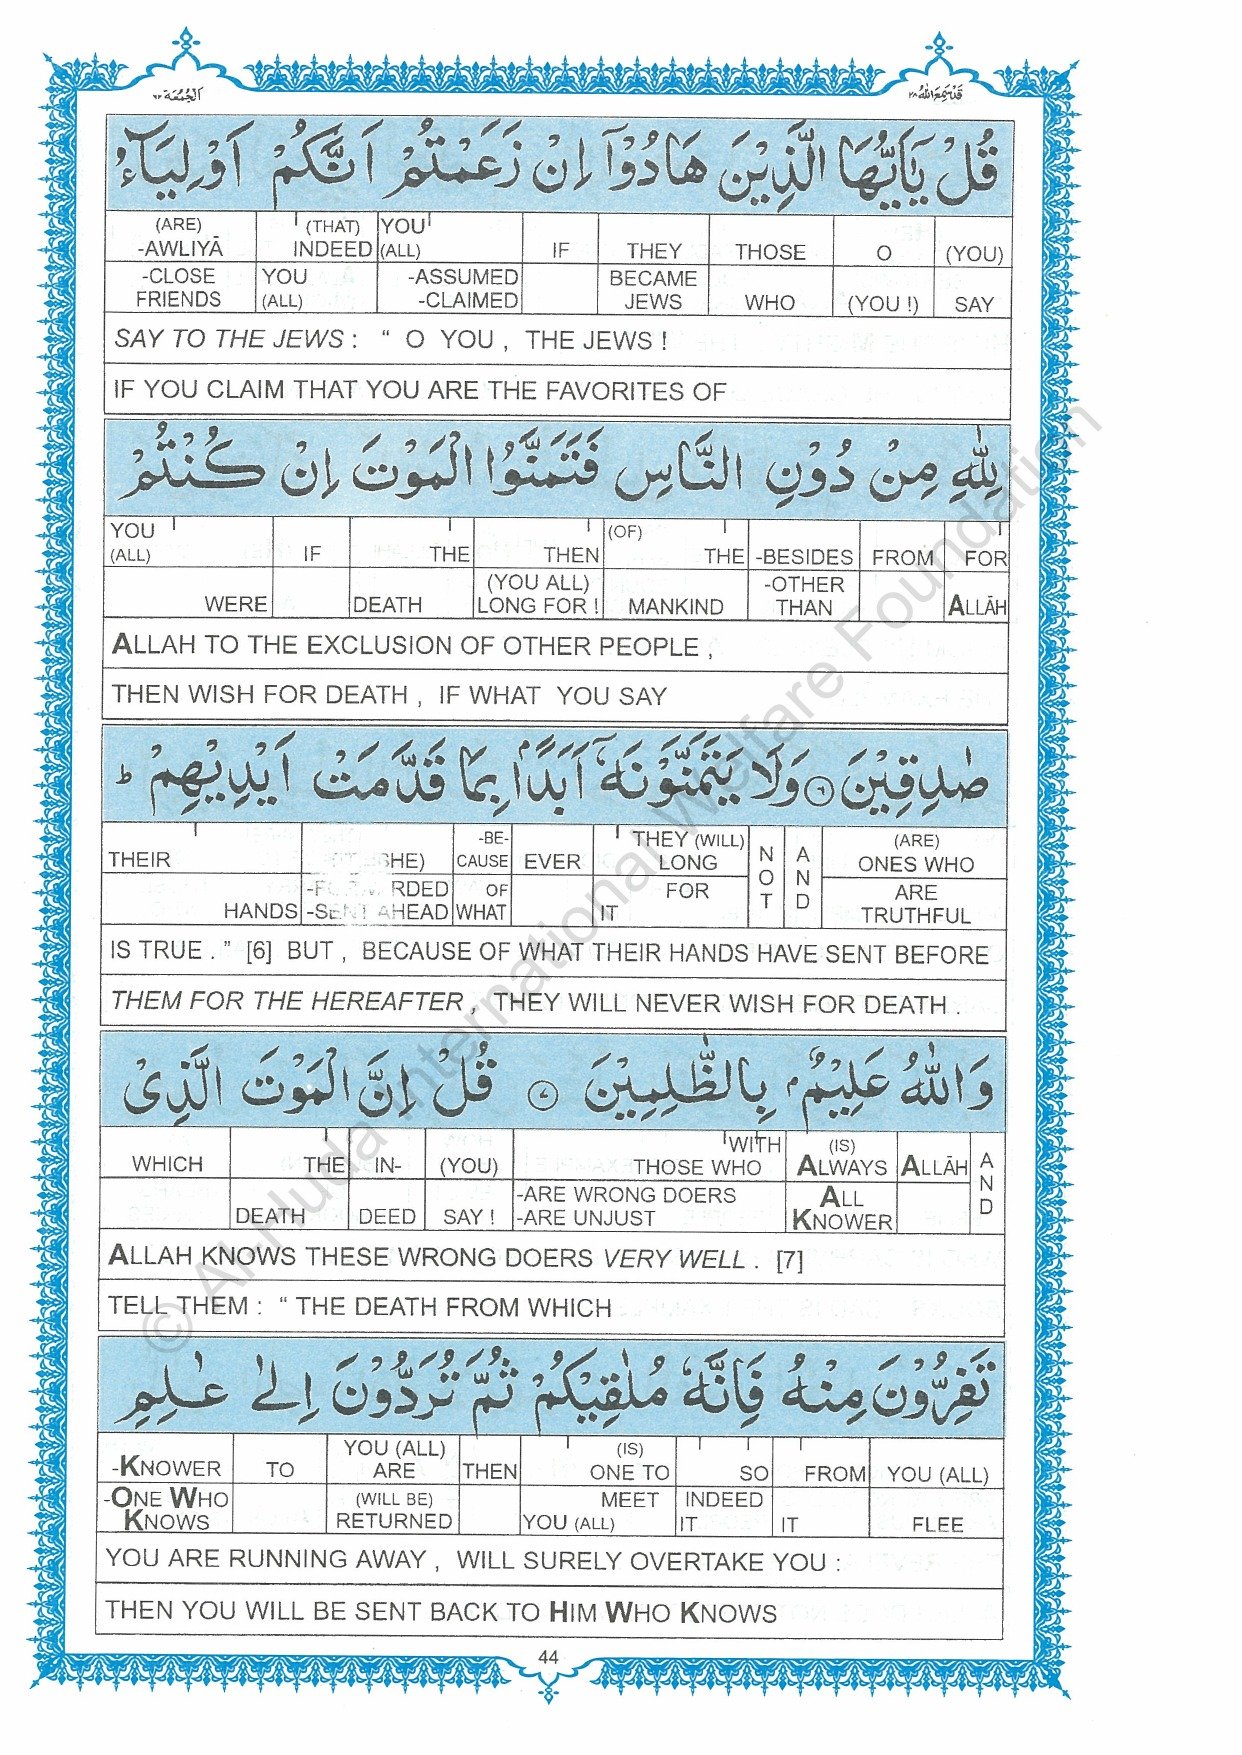 قَدْ سَمِعَ اللهُ ٢٨
اَلْجُمُعَة ٦٢
قُلْ يٰٓاَيُّهَا الَّذِيْنَ هَادُوْٓا اِنْ زَعَمْتُمْ اَنَّكُمْ اَوْلِيَآءُ
(ARE) (THAT) YOU
-AWLIYĀ INDEED (ALL) IF THEY THOSE O (YOU)
-CLOSE YOU -ASSUMED BECAME
FRIENDS (ALL) -CLAIMED JEWS WHO (YOU !) SAY
SAY TO THE JEWS : “ O YOU , THE JEWS !
IF YOU CLAIM THAT YOU ARE THE FAVORITES OF
لِلّٰهِ مِنْ دُوْنِ النَّاسِ فَتَمَنَّوُا الْمَوْتَ اِنْ كُنْتُمْ
YOU (OF)
(ALL) IF THE THEN THE -BESIDES FROM FOR
(YOU ALL) -OTHER
WERE DEATH LONG FOR ! MANKIND THAN ALLĀH
ALLAH TO THE EXCLUSION OF OTHER PEOPLE ,
THEN WISH FOR DEATH , IF WHAT YOU SAY
صٰدِقِيْنَ ٦ وَلَا يَتَمَنَّوْنَهٗٓ اَبَدًۢا بِمَا قَدَّمَتْ اَيْدِيْهِمْ ؕ
-BE- THEY (WILL) (ARE)
THEIR SHE) CAUSE EVER LONG NOT AND ONES WHO
RDED OF FOR ARE
HANDS -SENT AHEAD WHAT IT TRUTHFUL
IS TRUE . ” [6] BUT , BECAUSE OF WHAT THEIR HANDS HAVE SENT BEFORE
THEM FOR THE HEREAFTER , THEY WILL NEVER WISH FOR DEATH .
وَاللّٰهُ عَلِيْمٌۢ بِالظّٰلِمِيْنَ ٧ قُلْ اِنَّ الْمَوْتَ الَّذِيْ
WITH (IS)
WHICH THE IN- (YOU) THOSE WHO ALWAYS ALLĀH AND
-ARE WRONG DOERS ALL
DEATH DEED SAY ! -ARE UNJUST KNOWER
ALLAH KNOWS THESE WRONG DOERS VERY WELL . [7]
TELL THEM : “ THE DEATH FROM WHICH
تَفِرُّوْنَ مِنْهُ فَاِنَّهٗ مُلٰقِيْكُمْ ثُمَّ تُرَدُّوْنَ اِلٰى عٰلِمِ
YOU (ALL) (IS)
-KNOWER TO ARE THEN ONE TO SO FROM YOU (ALL)
-ONE WHO (WILL BE) MEET INDEED
KNOWS RETURNED YOU (ALL) IT IT FLEE
YOU ARE RUNNING AWAY , WILL SURELY OVERTAKE YOU :
THEN YOU WILL BE SENT BACK TO HIM WHO KNOWS
44
© Al-Huda International Welfare Foundation